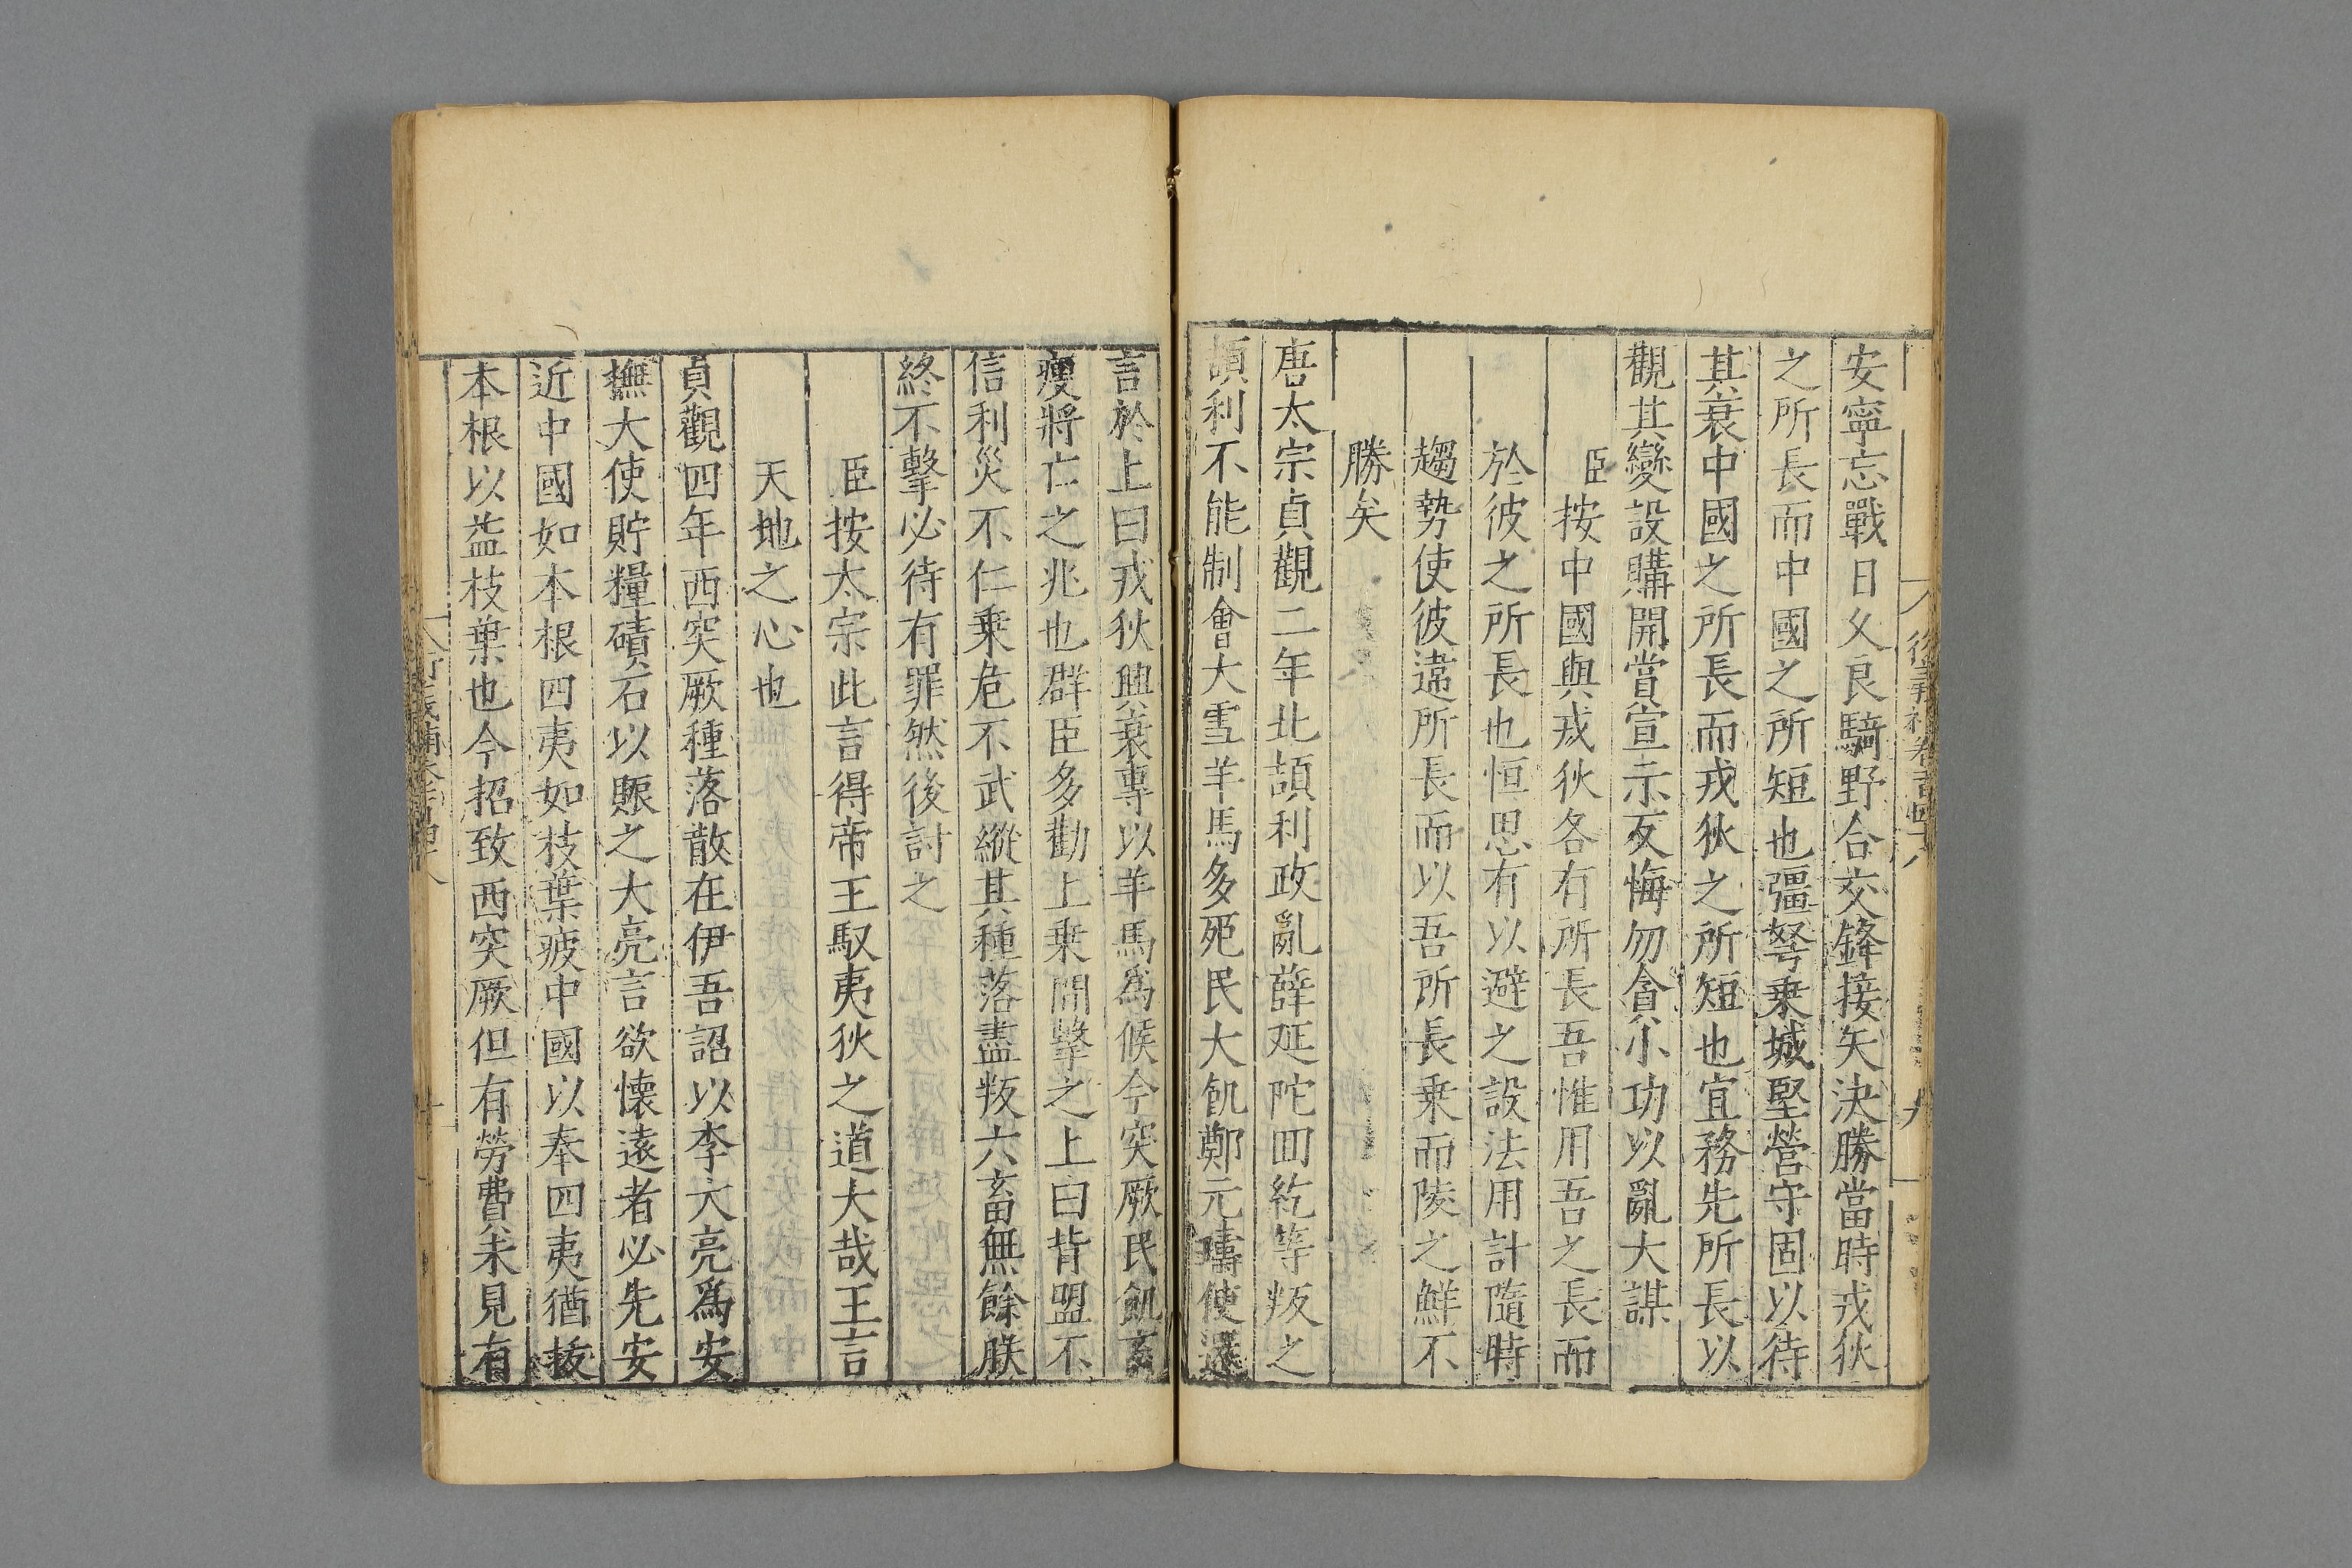 安寧忘戰日乆良騎野合交鋒接矢決勝當時戎狄
之所長而中國之所短也彊弩乗城堅營守固以待
其衰中國之所長而戎狄之所短也宜務先所長以
觀其變設購開賞宣示反悔勿貪小功以亂大謀
臣按中國與戎狄各有所長吾惟用吾之長而
於彼之所長也恒思有以避之設法用計隨時
趨勢使彼違所長而以吾所長乗而陵之鮮不
勝矣
唐太宗貞觀二年北頡利政亂薛延陀回紇等叛之
頡利不能制會大雪羊馬多死民大飢鄭元璹使還
言於上曰戎狄興衰專以羊馬爲候今突厥民飢畜
瘦將亡之兆也群臣多勸上乗間擊之上曰背盟不
信利災不仁乗危不武縱其種落盡叛六畜無餘朕
終不擊必待有罪然後討之
臣按太宗此言得帝王馭夷狄之道大哉王言
天地之心也
貞觀四年西突厥種落散在伊吾詔以李大亮爲安
撫大使貯糧磧石以賑之大亮言欲懐逺者必先安
近中國如本根四夷如枝葉疲中國以奉四夷猶拔
本根以益枝葉也今招致西突厥但有勞費未見有